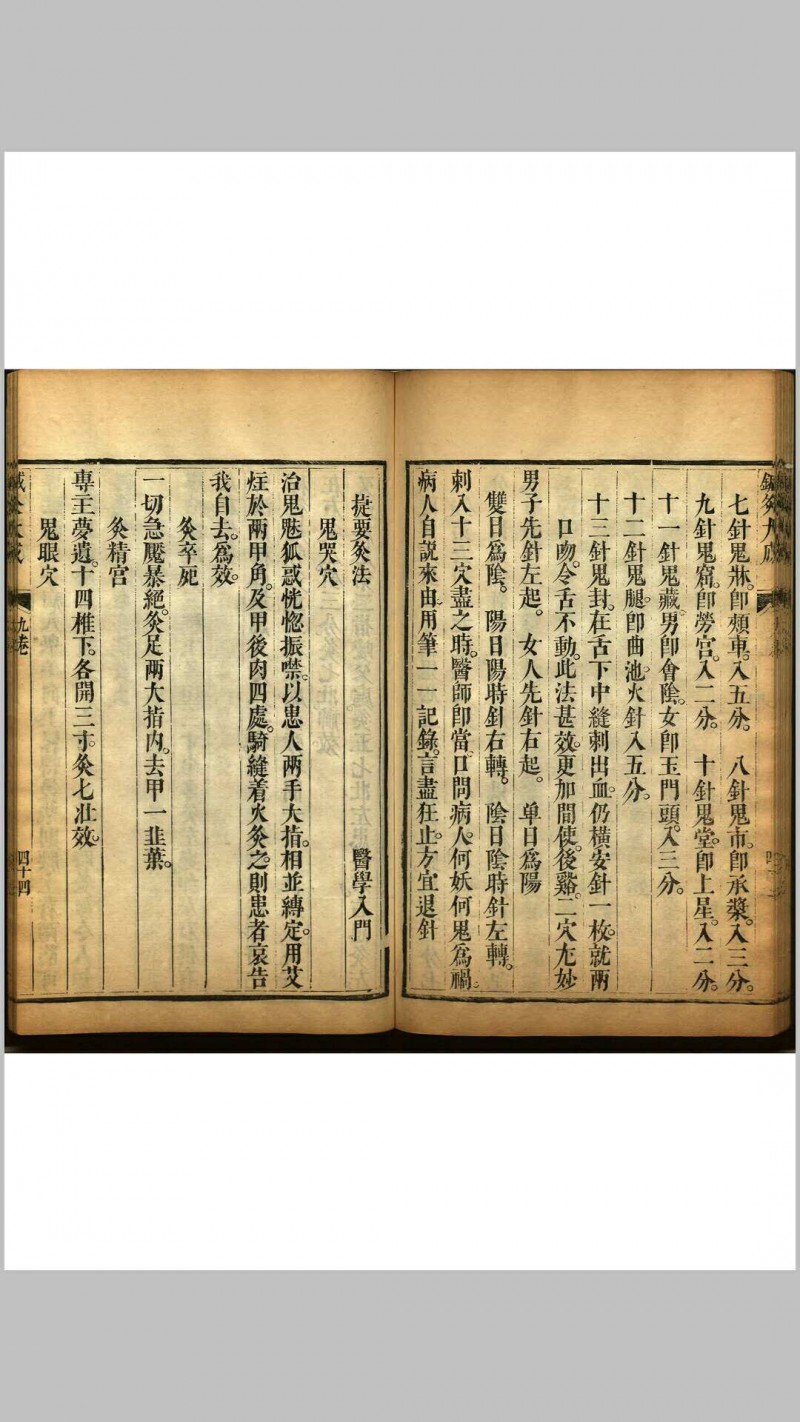 七針鬼牀。卽頰車。入五分。　八針鬼市。卽承漿。入三分。
九針鬼窟。卽勞宮。入二分。　十針鬼堂。卽上星。入二分。
十一針鬼藏。男卽會陰。女卽玉門頭。入三分。
十二針鬼腿。卽曲池。火針入五分。
十三針鬼封。在舌下中縫。刺出血。仍橫安針一枚。就兩
口吻。令舌不動。此法甚效。更加間使。後谿。二穴尤妙
男子先針左起。　女人先針右起。　单日爲陽
雙日爲陰。　陽日陽時針右轉。　陰日陰時針左轉。
刺入十三穴盡之時。醫師卽當口問病人。何妖何鬼爲禍。
病人自說來由。用筆一一記錄。言盡狂止。方宜退針
捷要灸法　醫學入門
鬼哭穴
治鬼魅狐惑恍惚振噤。以患人兩手大指。相並縛定。用艾
炷於兩甲角。及甲後肉四處。騎縫着火灸之。則患者哀告
我自去。爲效。
灸卒死
一切急魘暴絕。灸足兩大指內。去甲一韭葉。
灸精宮
專主夢遺。十四椎下。各開三寸。灸七壯效。
鬼眼穴
九卷
四十四